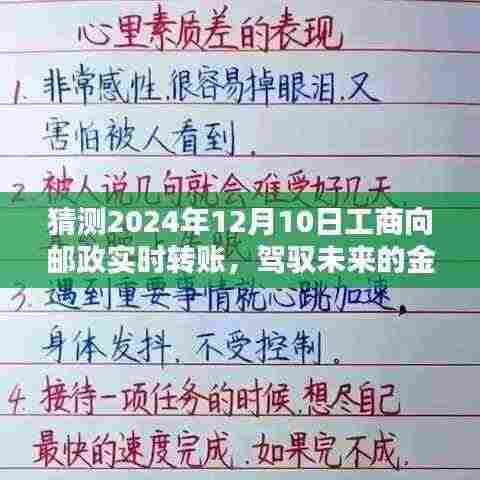 心里素质差的表现
1. 非常感性,很容易掉眼泪,又
害怕被人看到.
2. 被人说几句就会难受好几天
猜测2024年12月10日工商向
邮政实时转账，驾驭未来的金
3. 遇到重要事情就心跳加速,
身体发抖,不受控制.
4. 接待一项任务的时候,想尽自己
最快的速度完成.如果完不成.